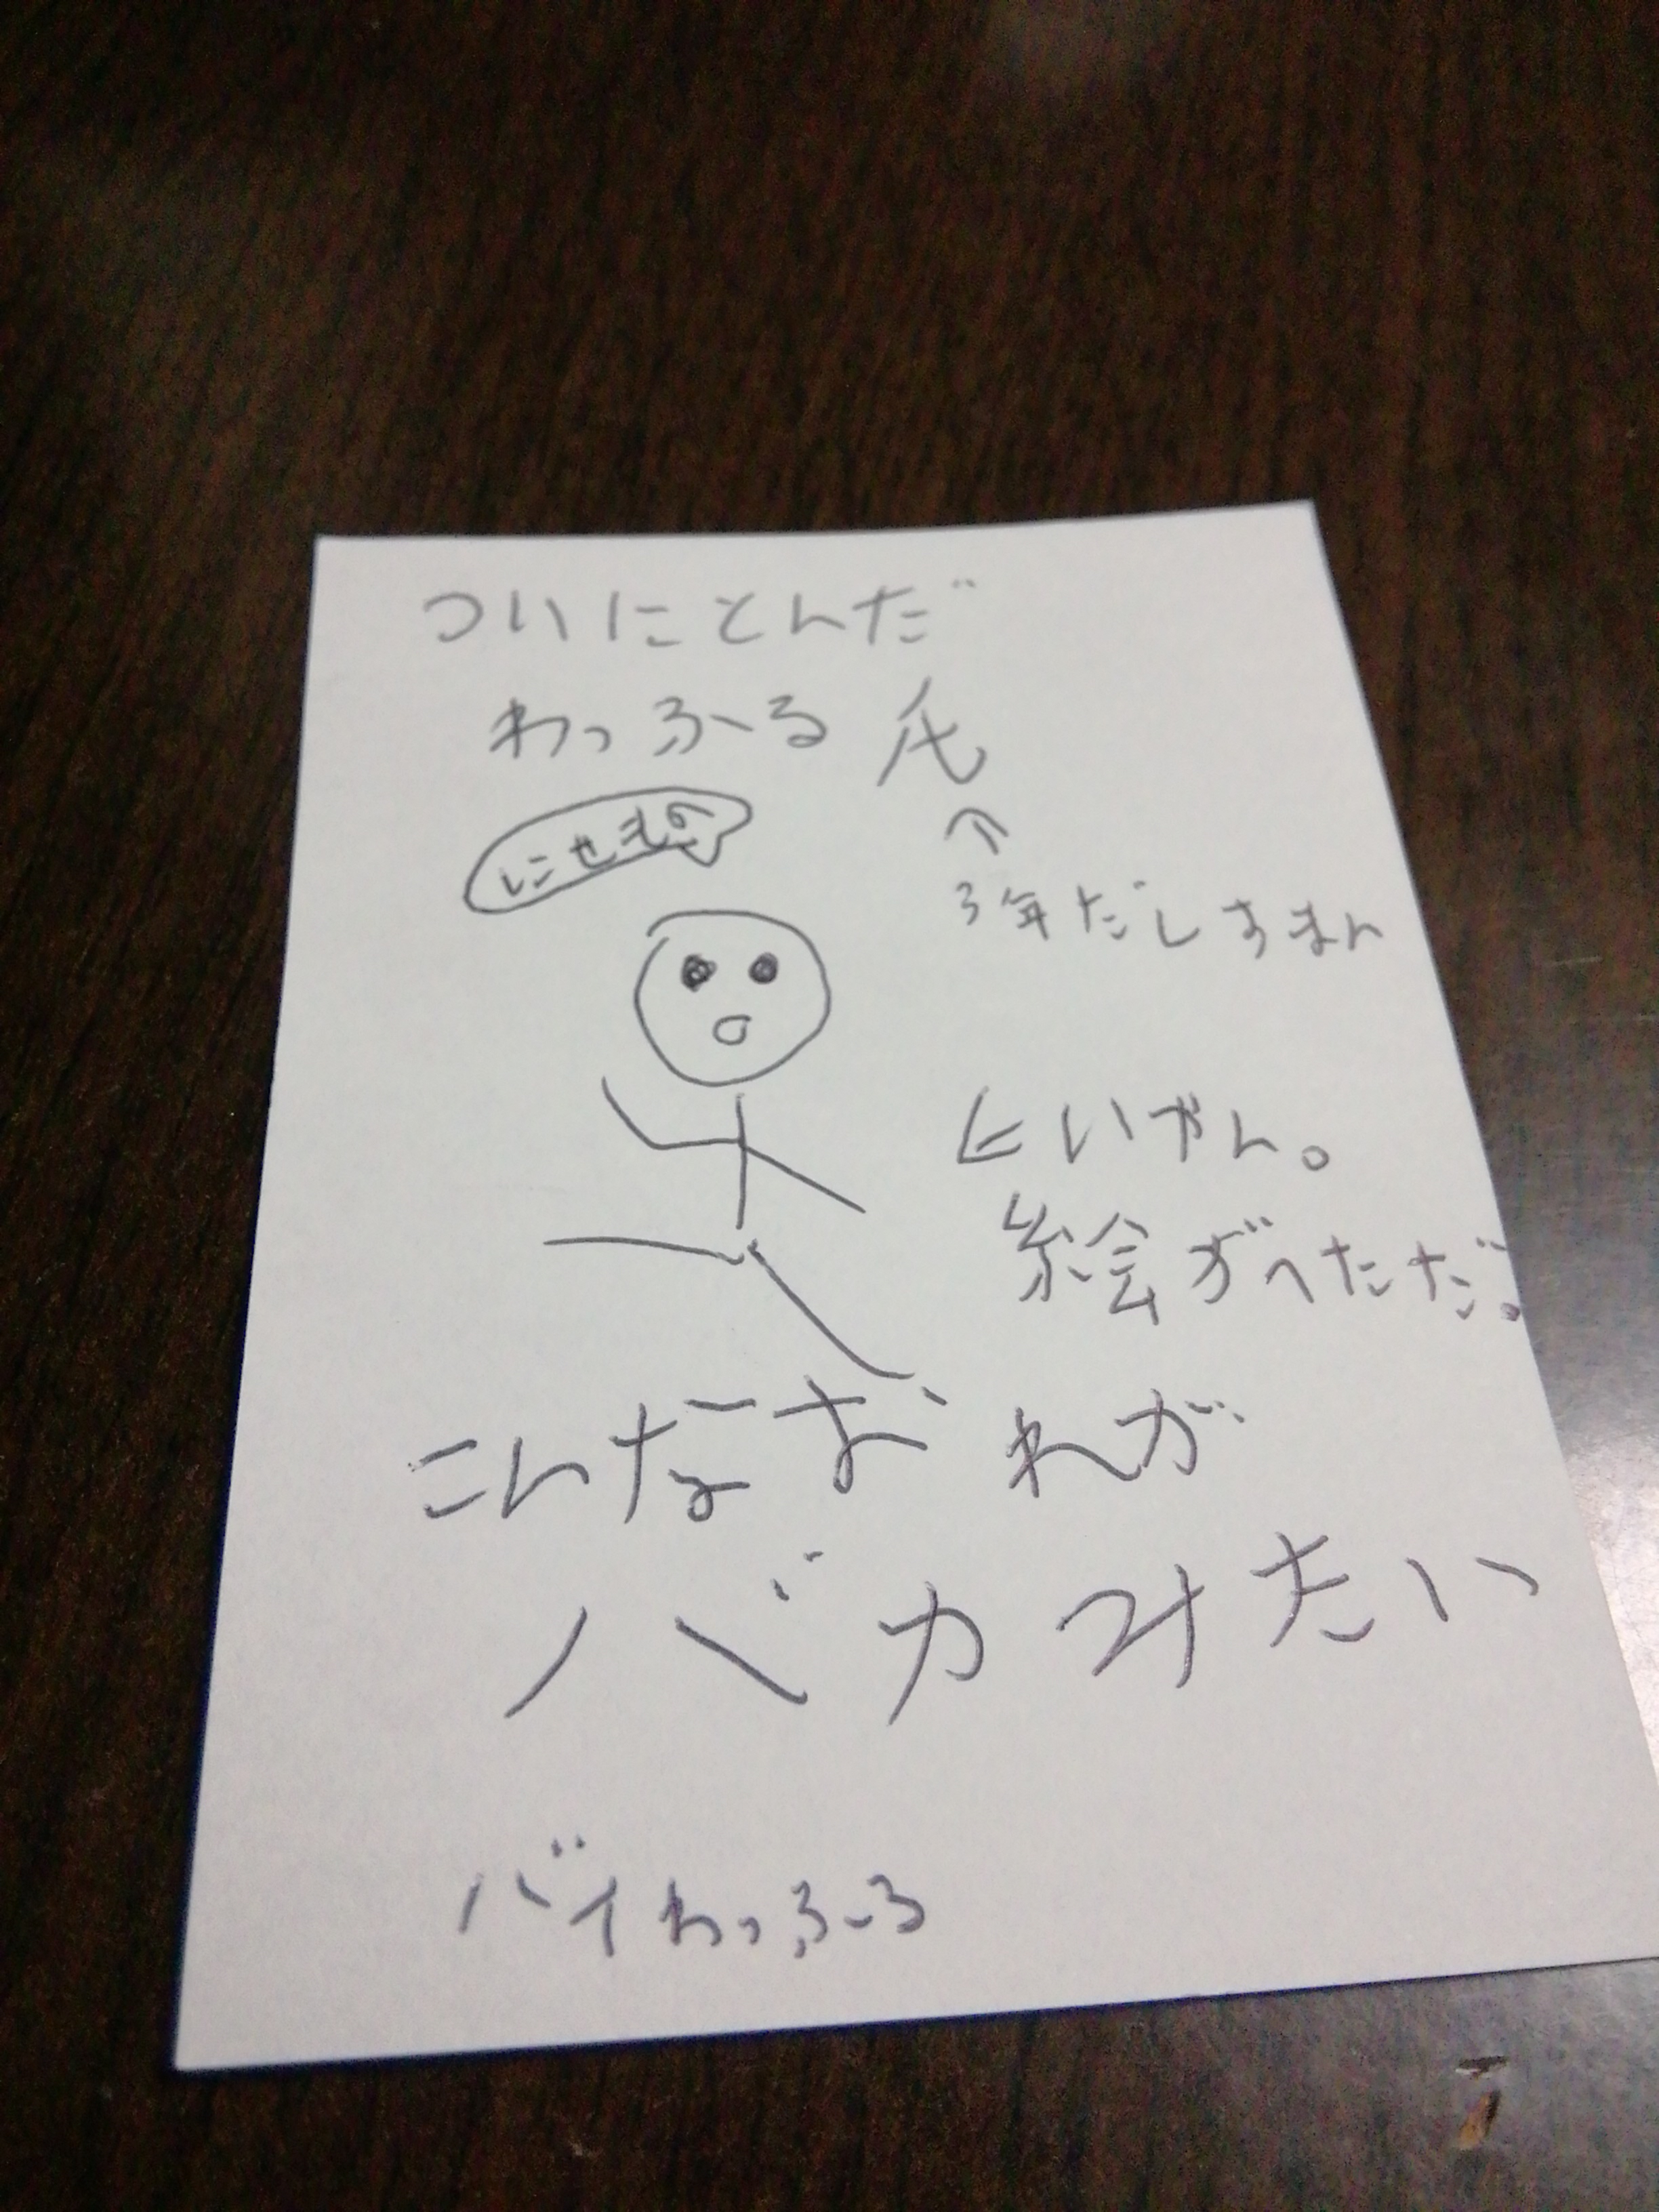 ついにとんだ
わっふーる氏
にせもの
↑
3年だしすまん
←いやん。
絵がへただ。
こんなおれが
バカみたい
バイわっふーる